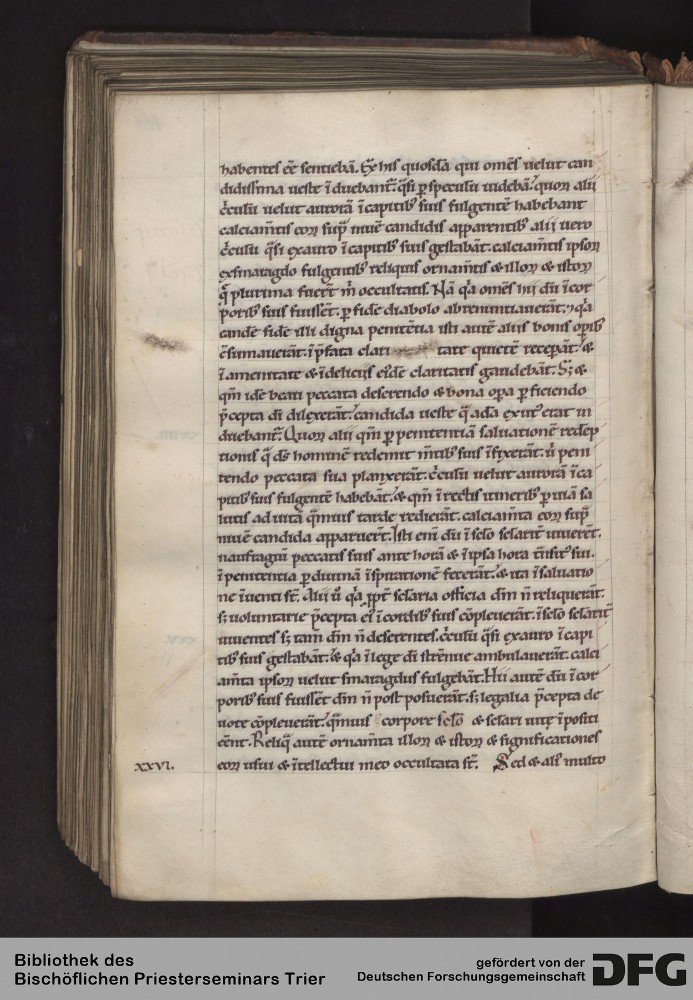 habentes eē sentiebā. Ex his quosdā qui om̄es uelut can
didissima ueste īduebant̄. q̄si ꝑ speculū uidebā. quoꝝ alii
c̄culū uelut aurorā ī capitib; suis fulgentē habebant
calciam̄tis eoꝝ sup̄ niuē candidis apparentib; alii uero
c̄culū q̄si ex auro ī capitib; suis gestabāt. calciam̄tis ipsoꝝ
ex smaragdo fulgentib; reliquis ornam̄tis & illoꝝ & istoꝝ
q̄ plurima fuer̄t m̄ occultatis. Nā q̄a om̄es hii dū ī cor
porib; suis fuissēt. ꝑ fidē diabolo abrenuntiauerāt. ⁊ q̄a
eandē fidē illi digna penitētia isti autē aliis bonis oꝑib;
c̄sumauerāt. ī p̄fata clari tate quietē receꝑāt. &
ī amenitate & ī deliciis eiꝰdē claritatis gaudebāt. S; &
qm̄ idē beati peccata deserendo & bona oꝑa ꝑficiendo
p̄cepta di dilexerāt. candida ueste q̄ adā exutꝰ erat in
duebant̄. Quoꝝ alii qm̄ ꝑ penitentiā saluationē redēp
tionis q̄ ds̄ hominē redemit m̄tib; suis īfixerāt. ū peni
tendo peccata sua planxerāt. c̄culū uelut aurorā ī ca
pitib; suis fulgentē habebāt. & qm̄ ī rectis itinerib; ꝑ uiā sa
lutis ad uitā q̄muis tarde redierāt. calciam̄ta eoꝝ sup̄
niuē candida apparuer̄t. Isti eni dū ī sclo sclarit̄ uiuerēt.
naufragiū peccatis suis ante horā & ī ipsa hora t̄nsitꝰ sui.
ī penitentia ꝑ diuinā īspirationē fecerāt. & ita ī saluatio
ne īuenti st̄. Alii ū q̄a ꝓpt̄ sclaria officia dm̄ n̄ reliquerāt.
s; uoluntarie p̄cepta eiꝰ ī cordib; suis cōpleuerāt. ī sclo sclarit̄
uiuentes s; tam̄ dm̄ n̄ deserentes. c̄culū q̄si ex auro ī capi
tib; suis gestabāt. & q̄a ī lege di strēnue ambulauerāt. calci
am̄ta ipsoꝝ uelut smaragdus fulgebāt. Hii autē dū ī cor
porib; suis fuissēt dm̄ n̄ postposuerāt. s; legalia p̄cepta de
uote cōpleuerāt. q̄muis corpore sclo & sclari uitę īpositi
eēnt. Reliq̄ autē ornam̄ta illoꝝ & istoꝝ & significationes
xxvi. eoꝝ usui & ītellectui meo occultata st̄. Sed & aliꝰ multo
Bibliothek des
Bischöflichen Priesterseminars Trier
gefördert von der
Deutschen Forschungsgemeinschaft
DFG